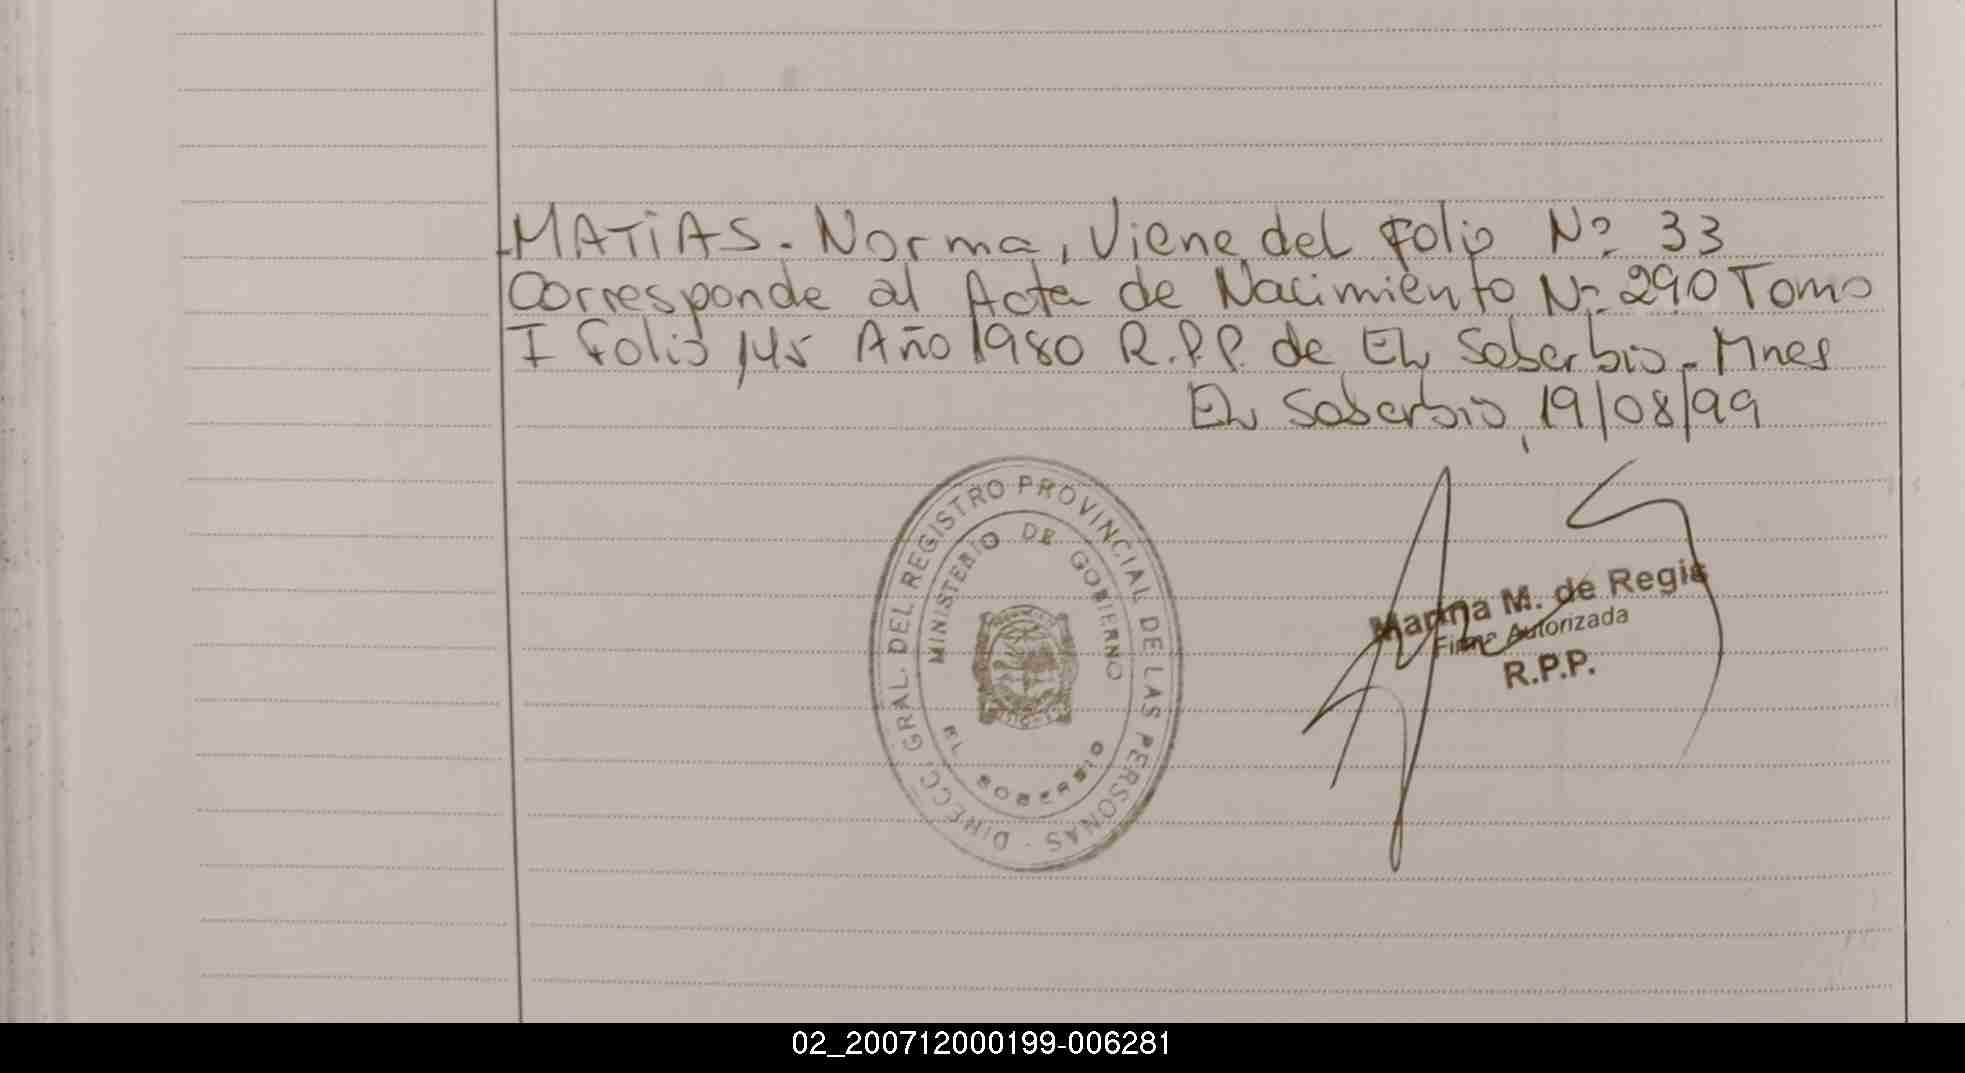 MATiAS. Norma, Viene del folio Nº 33
Corresponde al Acta de Nacimiento Nº 290 Tomo
I folio 145 Año 1980 R.P.P. de El Soberbio - Mnes
El Soberbio, 19/08/99
DIRECC. GRAL. DEL REGISTRO PROVINCIAL DE LAS PERSONAS -
MINISTERIO DE GOBIERNO
EL SOBERBIO
Marina M. de Regis
Firma Autorizada
R.P.P.
02_200712000199-006281